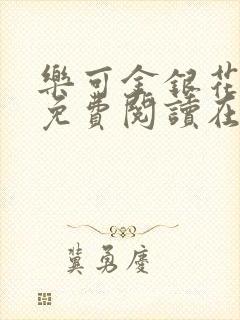 樂可金銀花
免費閱讀在
冀勇慶